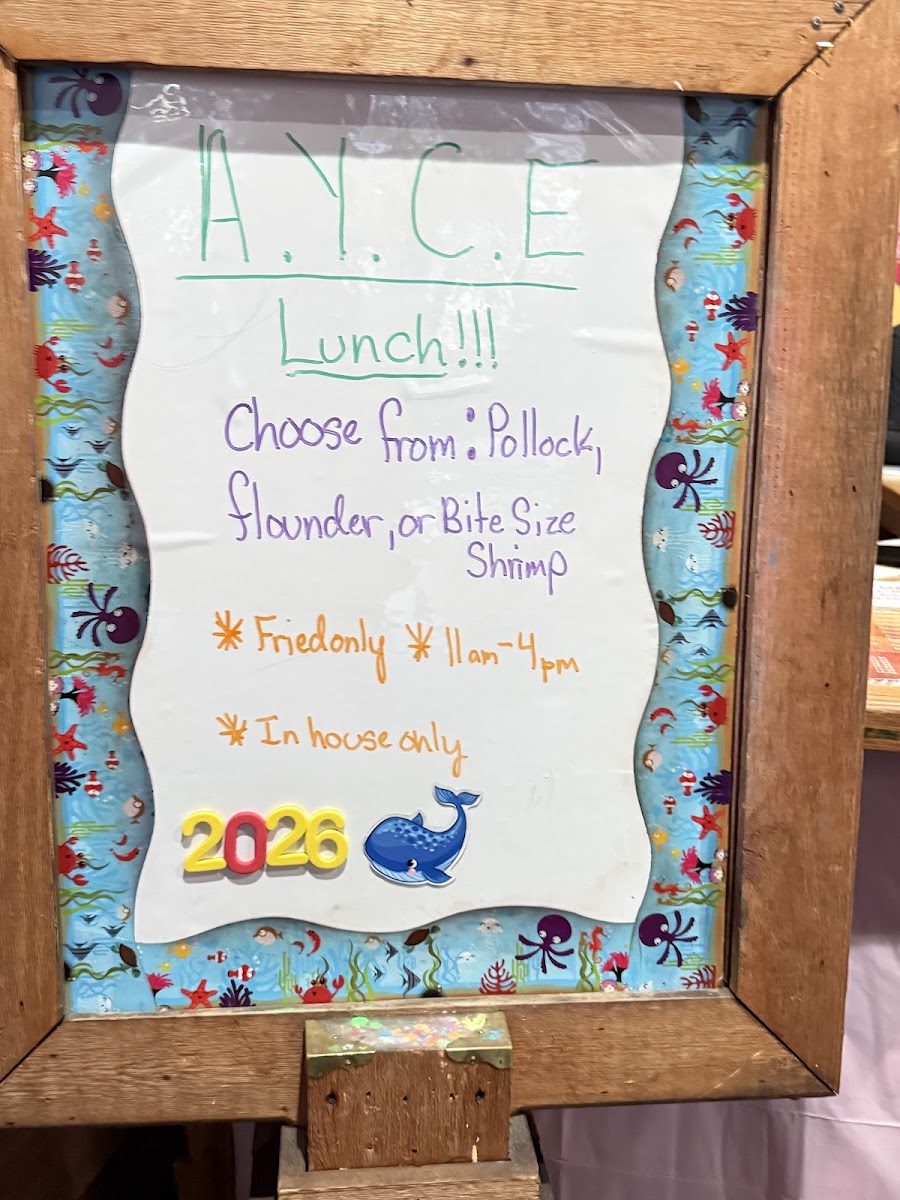 A.Y.C.E
Lunch!!!
Choose from: Pollock,
flounder, or Bite Size
Shrimp
* Fried only * 11am-4pm
* In house only
2026